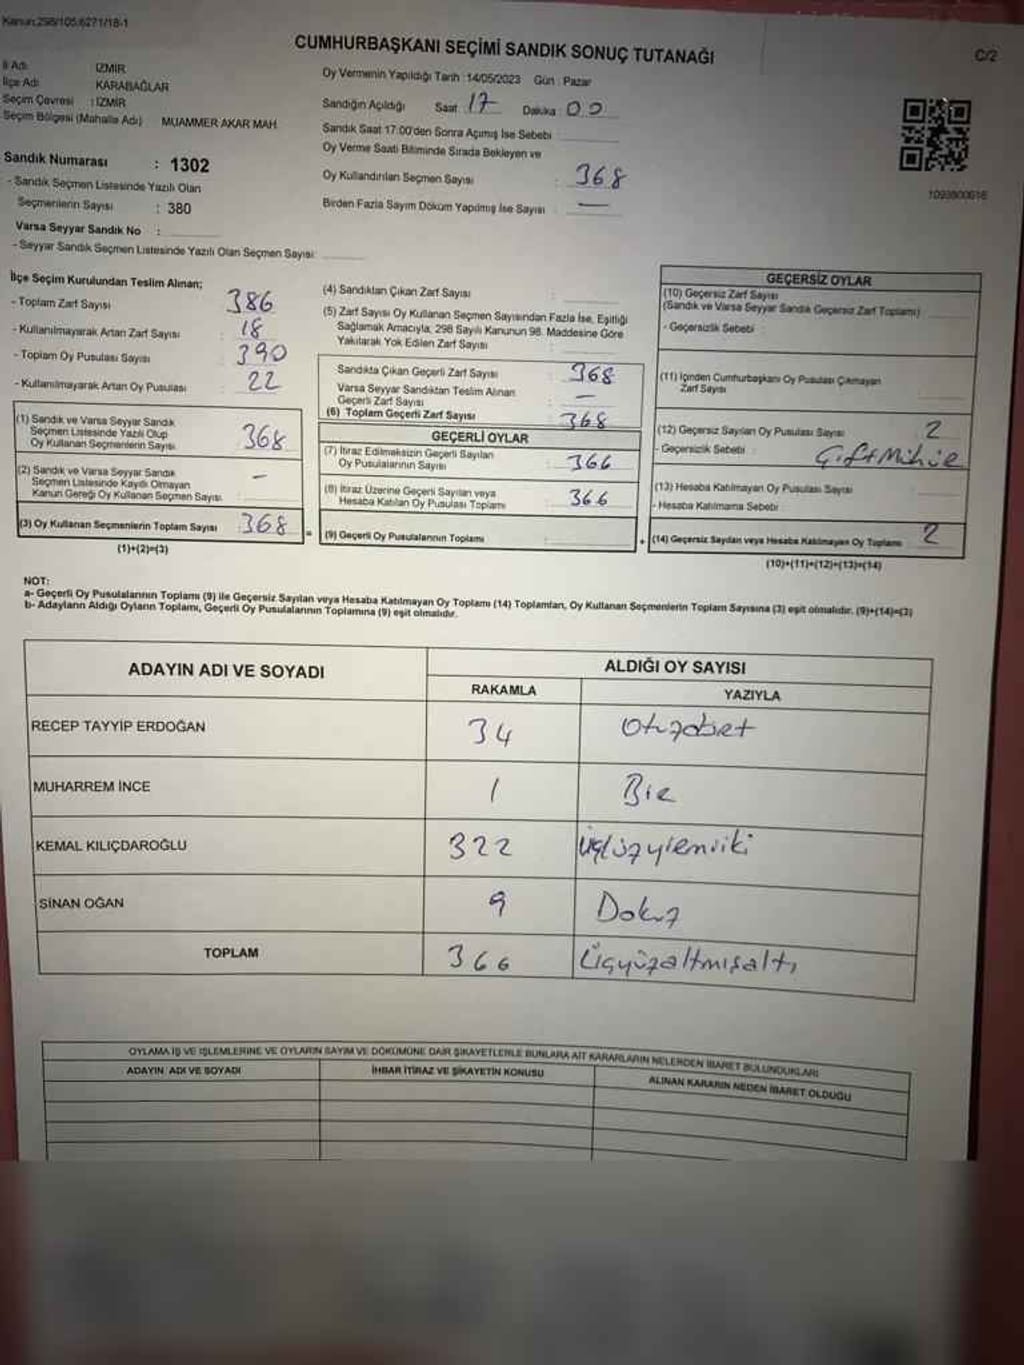 Kanun:298/105,6271/18-1
CUMHURBAŞKANI SEÇİMİ SANDIK SONUÇ TUTANAĞI
C/2
İl Adı İZMİR
İlçe Adı KARABAĞLAR
Seçim Çevresi : İZMİR
Seçim Bölgesi (Mahalle Adı) MUAMMER AKAR MAH.
Oy Vermenin Yapıldığı Tarih :14/05/2023 Gün : Pazar
Sandığın Açıldığı Saat 17 Dakika 00
Sandık Saat 17:00'den Sonra Açımış İse Sebebi
Oy Verme Saati Bitiminde Sırada Bekleyen ve
Oy Kullandırılan Seçmen Sayısı : 368
Birden Fazla Sayım Döküm Yapılmış İse Sayısı : —
1093800616
Sandık Numarası : 1302
- Sandık Seçmen Listesinde Yazılı Olan
Seçmenlerin Sayısı : 380
Varsa Seyyar Sandık No :
- Seyyar Sandık Seçmen Listesinde Yazılı Olan Seçmen Sayısı:
İlçe Seçim Kurulundan Teslim Alınan;
- Toplam Zarf Sayısı : 386
- Kullanılmayarak Artan Zarf Sayısı : 18
- Toplam Oy Pusulası Sayısı : 390
- Kullanılmayarak Artan Oy Pusulası : 22
(1) Sandık ve Varsa Seyyar Sandık
Seçmen Listesinde Yazılı Olup
Oy Kullanan Seçmenlerin Sayısı 368
(2) Sandık ve Varsa Seyyar Sandık
Seçmen Listesinde Kayıtlı Olmayan
Kanun Gereği Oy Kullanan Seçmen Sayısı : —
(3) Oy Kullanan Seçmenlerin Toplam Sayısı : 368
(1)+(2)=(3)
(4) Sandıktan Çıkan Zarf Sayısı :
(5) Zarf Sayısı Oy Kullanan Seçmen Sayısından Fazla İse, Eşitliği
Sağlamak Amacıyla, 298 Sayılı Kanunun 98. Maddesine Göre
Yakılarak Yok Edilen Zarf Sayısı :
Sandıkta Çıkan Geçerli Zarf Sayısı : 368
Varsa Seyyar Sandıktan Teslim Alınan
Geçerli Zarf Sayısı : —
(6) Toplam Geçerli Zarf Sayısı : 368
GEÇERLİ OYLAR
(7) İtiraz Edilmeksizin Geçerli Sayılan
Oy Pusulalarının Sayısı : 366
(8) İtiraz Üzerine Geçerli Sayılan veya
Hesaba Katılan Oy Pusulası Toplamı : 366
= (9) Geçerli Oy Pusulalarının Toplamı :
GEÇERSİZ OYLAR
(10) Geçersiz Zarf Sayısı
(Sandık ve Varsa Seyyar Sandık Geçersiz Zarf Toplamı)
- Geçersizlik Sebebi :
(11) İçinden Cumhurbaşkanı Oy Pusulası Çıkmayan
Zarf Sayısı
(12) Geçersiz Sayılan Oy Pusulası Sayısı 2
- Geçersizlik Sebebi : Çift Mühür
(13) Hesaba Katılmayan Oy Pusulası Sayısı
- Hesaba Katılmama Sebebi :
+ (14) Geçersiz Sayılan veya Hesaba Katılmayan Oy Toplamı 2
(10)+(11)+(12)+(13)=(14)
NOT:
a- Geçerli Oy Pusulalarının Toplamı (9) ile Geçersiz Sayılan veya Hesaba Katılmayan Oy Toplamı (14) Toplamları, Oy Kullanan Seçmenlerin Toplam Sayısına (3) eşit olmalıdır. (9)+(14)=(3)
b- Adayların Aldığı Oyların Toplamı, Geçerli Oy Pusulalarının Toplamına (9) eşit olmalıdır.
ADAYIN ADI VE SOYADI ALDIĞI OY SAYISI
RAKAMLA YAZIYLA
RECEP TAYYİP ERDOĞAN 34 Otuzdört
MUHARREM İNCE 1 Bir
KEMAL KILIÇDAROĞLU 322
SİNAN OĞAN 9 Dokuz
TOPLAM 366 Üçyüzaltmışaltı
OYLAMA İŞ VE İŞLEMLERİNE VE OYLARIN SAYIM VE DÖKÜMÜNE DAİR ŞİKAYETLERLE BUNLARA AİT KARARLARIN NELERDEN İBARET BULUNDUKLARI
ADAYIN ADI VE SOYADI İHBAR İTİRAZ VE ŞİKAYETİN KONUSU ALINAN KARARIN NEDEN İBARET OLDUĞU